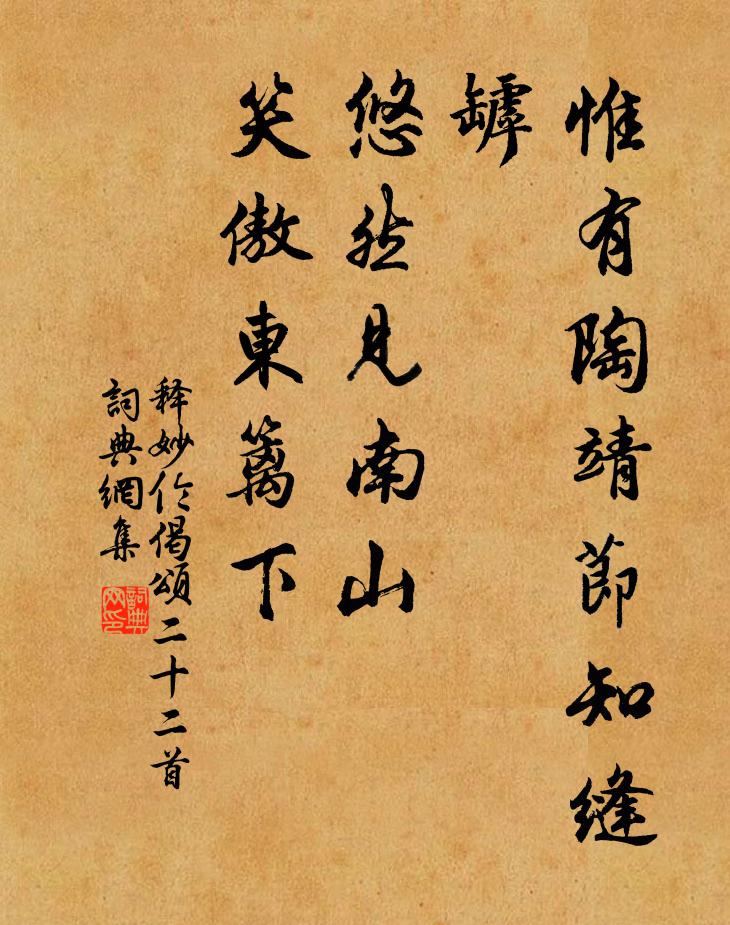 惟有陶靖節知縫
罅
悠然見南山
笑傲東篱下
释妙伦偈頌二十二首
詞典網集
詞典网印